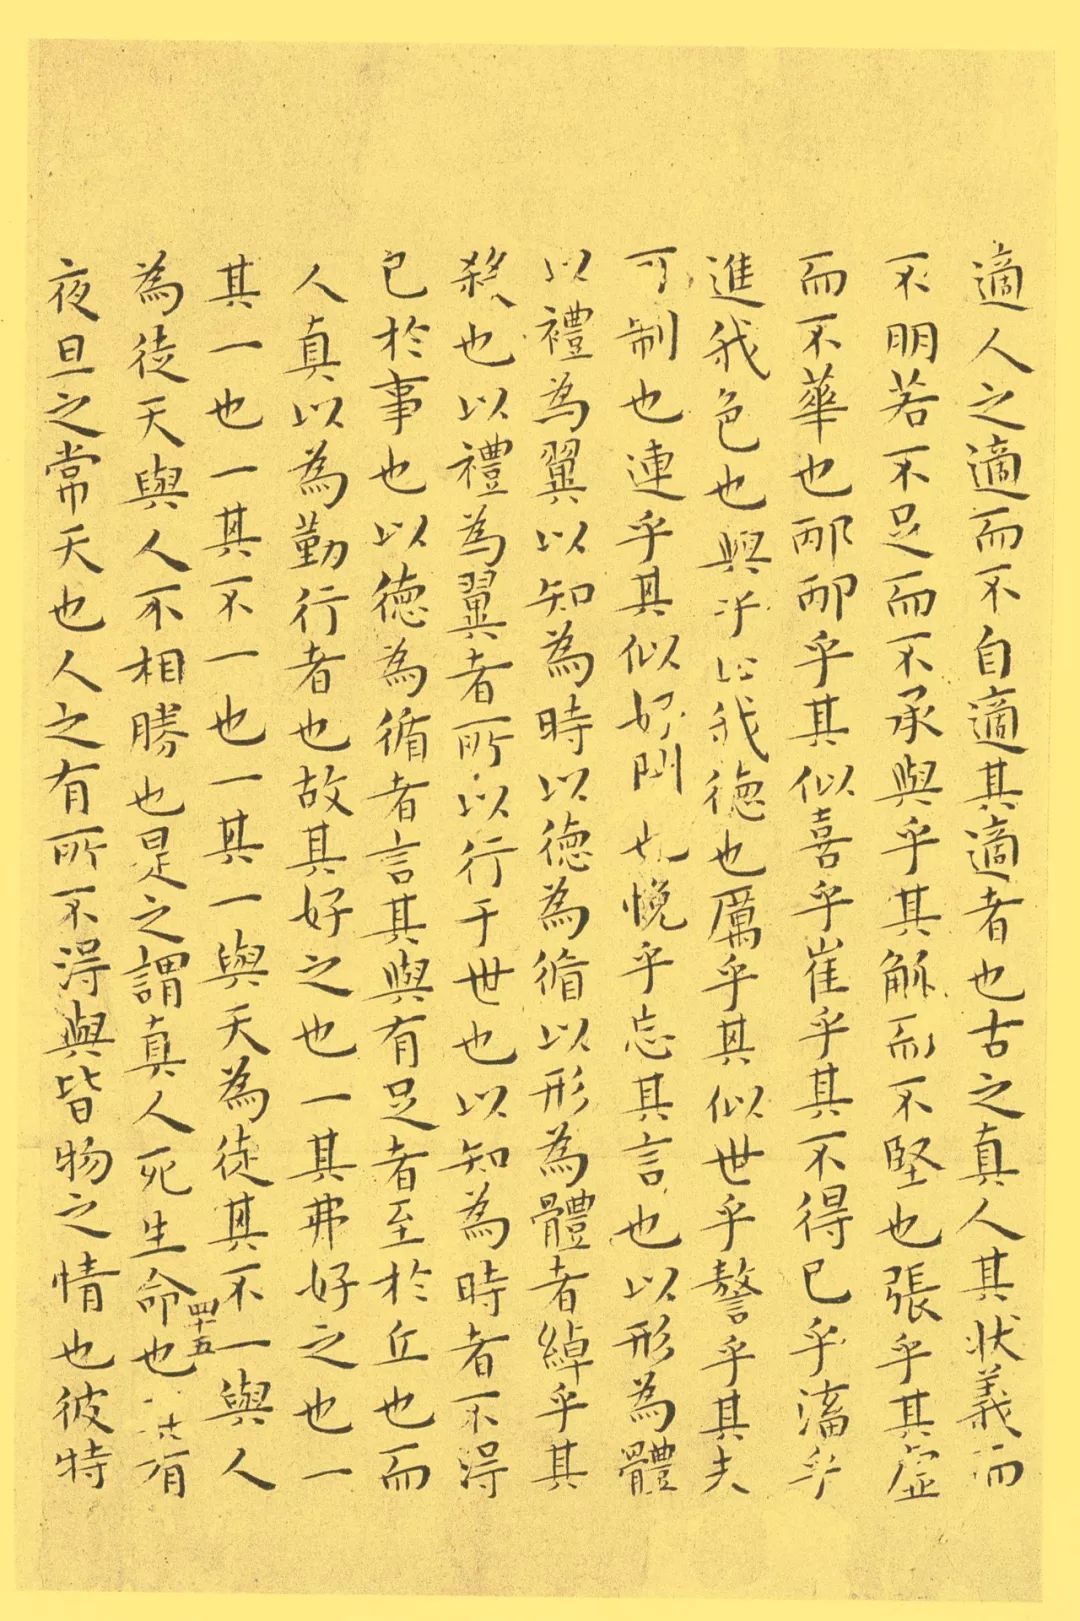 適人之適而不自適其適者也古之真人其状義而
不明若不足而不承與乎其觚而不堅也張乎其虛
而不華也邴邴乎其似喜乎崔乎其不得已乎滀乎
進我色也與乎止我德也厲乎其似世乎謷乎其夫
可制也連乎其似好閈也悗乎忘其言也以形為體
以禮為翼以知為時以德為循以形為體者綽乎其
殺也以禮為翼者所以行于世也以知為時者不得
已於事也以德為循者言其與有足者至於丘也而
人真以為勤行者也故其好之也一其弗好之也一
其一也一其不一也一其一與天為徒其不一與人
四十五
為徒天與人不相勝也是之謂真人死生命也其有
夜旦之常天也人之有所不得與皆物之情也彼特